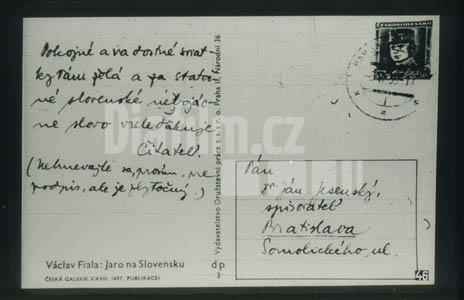 Pokojné a radostné sviat-
ky Vám želá a za statoč-
né slovenské nebojác-
ne slovo vrele ďakuje
Čitateľ.
(Nehnevajte sa, prosím, pre
podpis, ale je zbytočný.)
Václav Fiala: Jaro na Slovensku
ČESKÁ GALERIE XXVIII. (497. PUBLIKACE)
dp
3
Vydavatelstvo Družstevní práce s. s r. o. Praha II, Národní 36
ČESKOSLOVENSKO
Pán
Dr Ján Jesenský,
spisovateľ
Bratislava
Somolického ul.
46